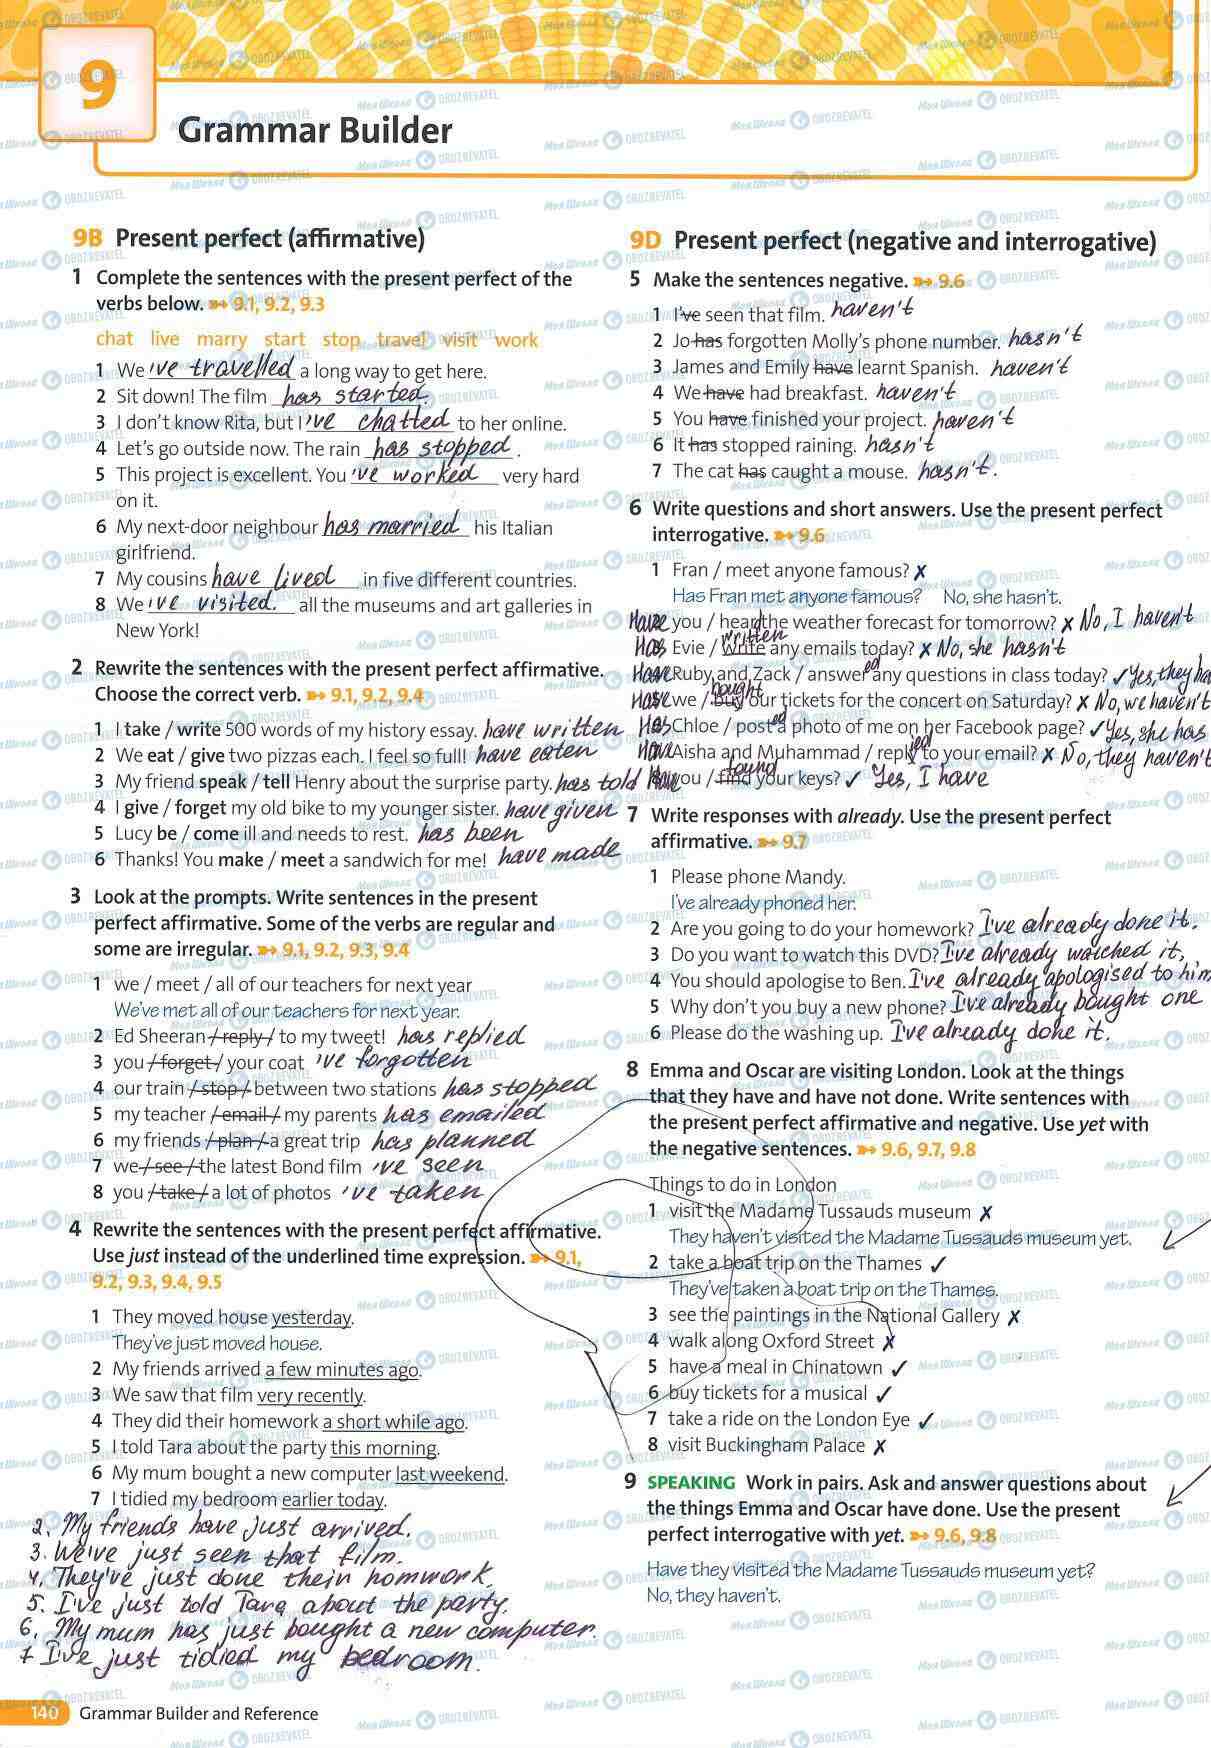 9
Grammar Builder
9B Present perfect (affirmative)
1 Complete the sentences with the present perfect of the
verbs below. ➳ 9.1, 9.2, 9.3
chat live marry start stop travel visit work
1 We 've travelled a long way to get here.
2 Sit down! The film has started.
3 I don't know Rita, but I 've chatted to her online.
4 Let's go outside now. The rain has stopped .
5 This project is excellent. You 've worked very hard
on it.
6 My next-door neighbour has married his Italian
girlfriend.
7 My cousins have lived in five different countries.
8 We 've visited. all the museums and art galleries in
New York!
2 Rewrite the sentences with the present perfect affirmative.
Choose the correct verb. ➳ 9.1, 9.2, 9.4
1 I take / write 500 words of my history essay. have written
2 We eat / give two pizzas each. I feel so full! have eaten
3 My friend speak / tell Henry about the surprise party. has told
4 I give / forget my old bike to my younger sister. have given
5 Lucy be / come ill and needs to rest. has been
6 Thanks! You make / meet a sandwich for me! have made
3 Look at the prompts. Write sentences in the present
perfect affirmative. Some of the verbs are regular and
some are irregular. ➳ 9.1, 9.2, 9.3, 9.4
1 we / meet / all of our teachers for next year
We've met all of our teachers for next year.
2 Ed Sheeran / reply / to my tweet! has replied
3 you / forget / your coat 've forgotten
4 our train / stop / between two stations has stopped
5 my teacher / email / my parents has emailed
6 my friends / plan / a great trip has planned
7 we / see / the latest Bond film 've seen
8 you / take / a lot of photos 've taken
4 Rewrite the sentences with the present perfect affirmative.
Use just instead of the underlined time expression. ➳ 9.1,
9.2, 9.3, 9.4, 9.5
1 They moved house yesterday.
They've just moved house.
2 My friends arrived a few minutes ago.
3 We saw that film very recently.
4 They did their homework a short while ago.
5 I told Tara about the party this morning.
6 My mum bought a new computer last weekend.
7 I tidied my bedroom earlier today.
2. My friends have just arrived.
3. We've just seen that film.
4. They've just done their homwork.
5. I've just told Tara about the party.
6. My mum has just bought a new computer.
7 I've just tidied my bedroom.
140 Grammar Builder and Reference
9D Present perfect (negative and interrogative)
5 Make the sentences negative. ➳ 9.6
1 I've seen that film. haven't
2 Jo has forgotten Molly's phone number. hasn't
3 James and Emily have learnt Spanish. haven't
4 We have had breakfast. haven't
5 You have finished your project. haven't
6 It has stopped raining. hasn't
7 The cat has caught a mouse. hasn't.
6 Write questions and short answers. Use the present perfect
interrogative. ➳ 9.6
1 Fran / meet anyone famous? ✗
Has Fran met anyone famous? No, she hasn't.
Have you / heard the weather forecast for tomorrow? ✗ No, I haven't
written
Has Evie / write any emails today? ✗ No, she hasn't
Have Ruby and Zack / answered any questions in class today? ✓ Yes, they ha
bought
Have we / buy our tickets for the concert on Saturday? ✗ No, we haven't
Has Chloe / posted a photo of me on her Facebook page? ✓ Yes, she has
Have Aisha and Muhammad / replied to your email? ✗ No, they haven't
found
Have you / find your keys? ✓ Yes, I have
7 Write responses with already. Use the present perfect
affirmative. ➳ 9.7
1 Please phone Mandy.
I've already phoned her.
2 Are you going to do your homework? I've already done it.
3 Do you want to watch this DVD? I've already watched it,
4 You should apologise to Ben. I've already apologised to him
5 Why don't you buy a new phone? I've already bought one
6 Please do the washing up. I've already done it.
8 Emma and Oscar are visiting London. Look at the things
that they have and have not done. Write sentences with
the present perfect affirmative and negative. Use yet with
the negative sentences. ➳ 9.6, 9.7, 9.8
Things to do in London
1 visit the Madame Tussauds museum ✗
They haven't visited the Madame Tussauds museum yet.
2 take a boat trip on the Thames ✓
They've taken a boat trip on the Thames.
3 see the paintings in the National Gallery ✗
4 walk along Oxford Street ✗
5 have a meal in Chinatown ✓
6 buy tickets for a musical ✓
7 take a ride on the London Eye ✓
8 visit Buckingham Palace ✗
9 SPEAKING Work in pairs. Ask and answer questions about
the things Emma and Oscar have done. Use the present
perfect interrogative with yet. ➳ 9.6, 9.8
Have they visited the Madame Tussauds museum yet?
No, they haven't.
Моя Школа OBOZREVATEL